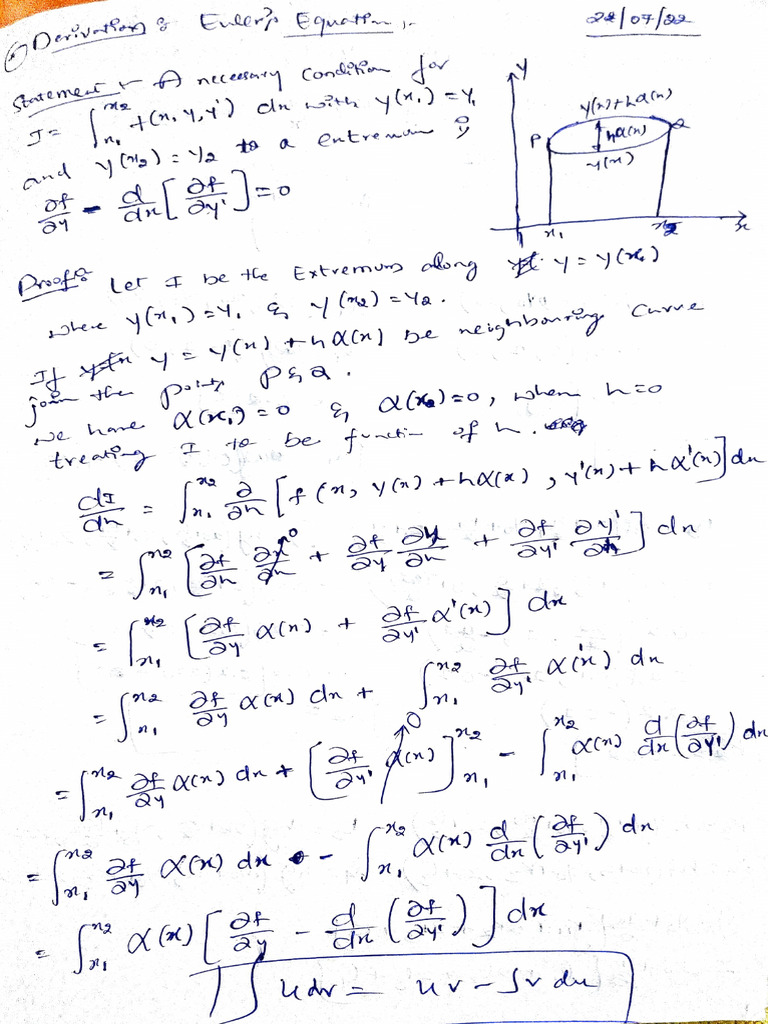 Derivation of Euler's Equation :-
22/07/22
Statement :- A necessary condition for
I = ∫_{x₁}^{x₂} f(x, y, y') dx with y(x₁) = y₁
and y(x₂) = y₂ to a extremum is
∂f/∂y - d/dx [∂f/∂y'] = 0
y
y(x)+hα(x)
P
hα(x)
Q
y(x)
x₁
x₂
x
Proof: Let I be the Extremum along y = y(x)
where y(x₁) = y₁ & y(x₂) = y₂.
If y = y(x) + hα(x) be neighbouring curve
join the points P & Q.
we have α(x₁) = 0 & α(x₂) = 0, when h = 0
treating I to be function of h.
dI/dh = ∫_{x₁}^{x₂} ∂/∂h [f(x, y(x) + hα(x), y'(x) + hα'(x)] dx
= ∫_{x₁}^{x₂} [∂f/∂x ∂x/∂h 0 + ∂f/∂y ∂y/∂h + ∂f/∂y' ∂y'/∂h] dx
= ∫_{x₁}^{x₂} [∂f/∂y α(x) + ∂f/∂y' α'(x)] dx
= ∫_{x₁}^{x₂} ∂f/∂y α(x) dx + ∫_{x₁}^{x₂} ∂f/∂y' α'(x) dx
= ∫_{x₁}^{x₂} ∂f/∂y α(x) dx + [∂f/∂y' α(x)]_{x₁}^{x₂} 0 - ∫_{x₁}^{x₂} α(x) d/dx (∂f/∂y') dx
= ∫_{x₁}^{x₂} ∂f/∂y α(x) dx - ∫_{x₁}^{x₂} α(x) d/dx (∂f/∂y') dx
= ∫_{x₁}^{x₂} α(x) [∂f/∂y - d/dx (∂f/∂y')] dx
∫ u dv = uv - ∫ v du